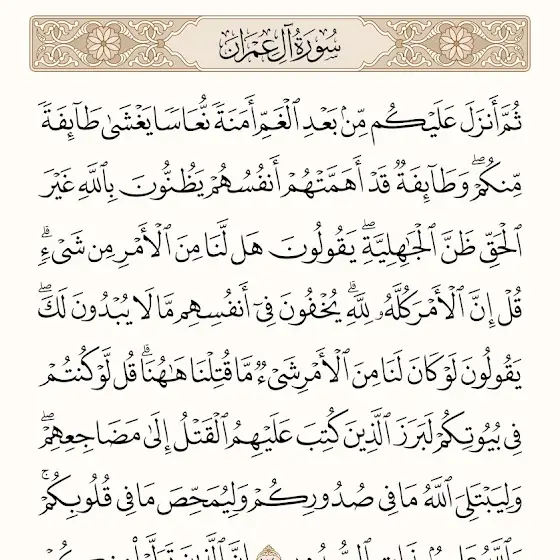 سُورَةُ آلِ عِمْرَان
ثُمَّ أَنزَلَ عَلَيْكُم مِّنۢ بَعْدِ ٱلْغَمِّ أَمَنَةً نُّعَاسًا يَغْشَىٰ طَآئِفَةً
مِّنكُمْ ۖ وَطَآئِفَةٌ قَدْ أَهَمَّتْهُمْ أَنفُسُهُمْ يَظُنُّونَ بِٱللَّهِ غَيْرَ
ٱلْحَقِّ ظَنَّ ٱلْجَٰهِلِيَّةِ ۖ يَقُولُونَ هَل لَّنَا مِنَ ٱلْأَمْرِ مِن شَىْءٍ ۗ
قُلْ إِنَّ ٱلْأَمْرَ كُلَّهُۥ لِلَّهِ ۗ يُخْفُونَ فِىٓ أَنفُسِهِم مَّا لَا يُبْدُونَ لَكَ ۖ
يَقُولُونَ لَوْ كَانَ لَنَا مِنَ ٱلْأَمْرِ شَىْءٌ مَّا قُتِلْنَا هَٰهُنَا ۗ قُل لَّوْ كُنتُمْ
فِى بُيُوتِكُمْ لَبَرَزَ ٱلَّذِينَ كُتِبَ عَلَيْهِمُ ٱلْقَتْلُ إِلَىٰ مَضَاجِعِهِمْ ۖ
وَلِيَبْتَلِىَ ٱللَّهُ مَا فِى صُدُورِكُمْ وَلِيُمَحِّصَ مَا فِى قُلُوبِكُمْ ۚ